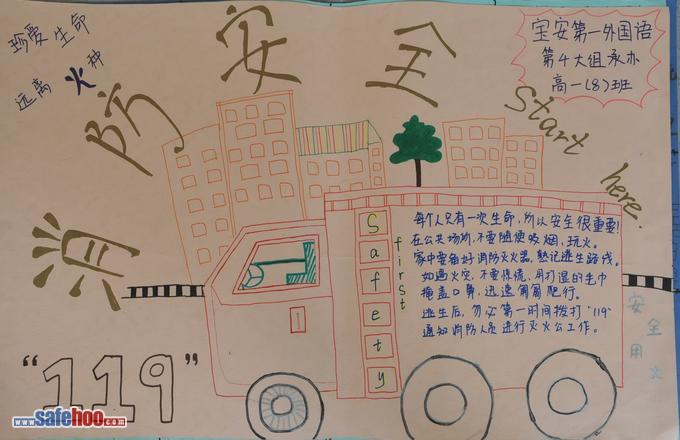 珍爱生命
远离火种
消防安全
start here.
宝安第一外国语
第4大组承办
高一(8)班
Safety
first
每个人只有一次生命,所以安全很重要!
在公共场所,不要随便吸烟,玩火。
家中要备好消防灭火器,熟记逃生路线。
如遇火灾,不要惊慌,用打湿的毛巾
掩盖口鼻,迅速匍匐爬行。
逃生后,务必第一时间拨打"119"
通知消防人员进行灭火工作。
安全用
"119"
www.safehoo.com